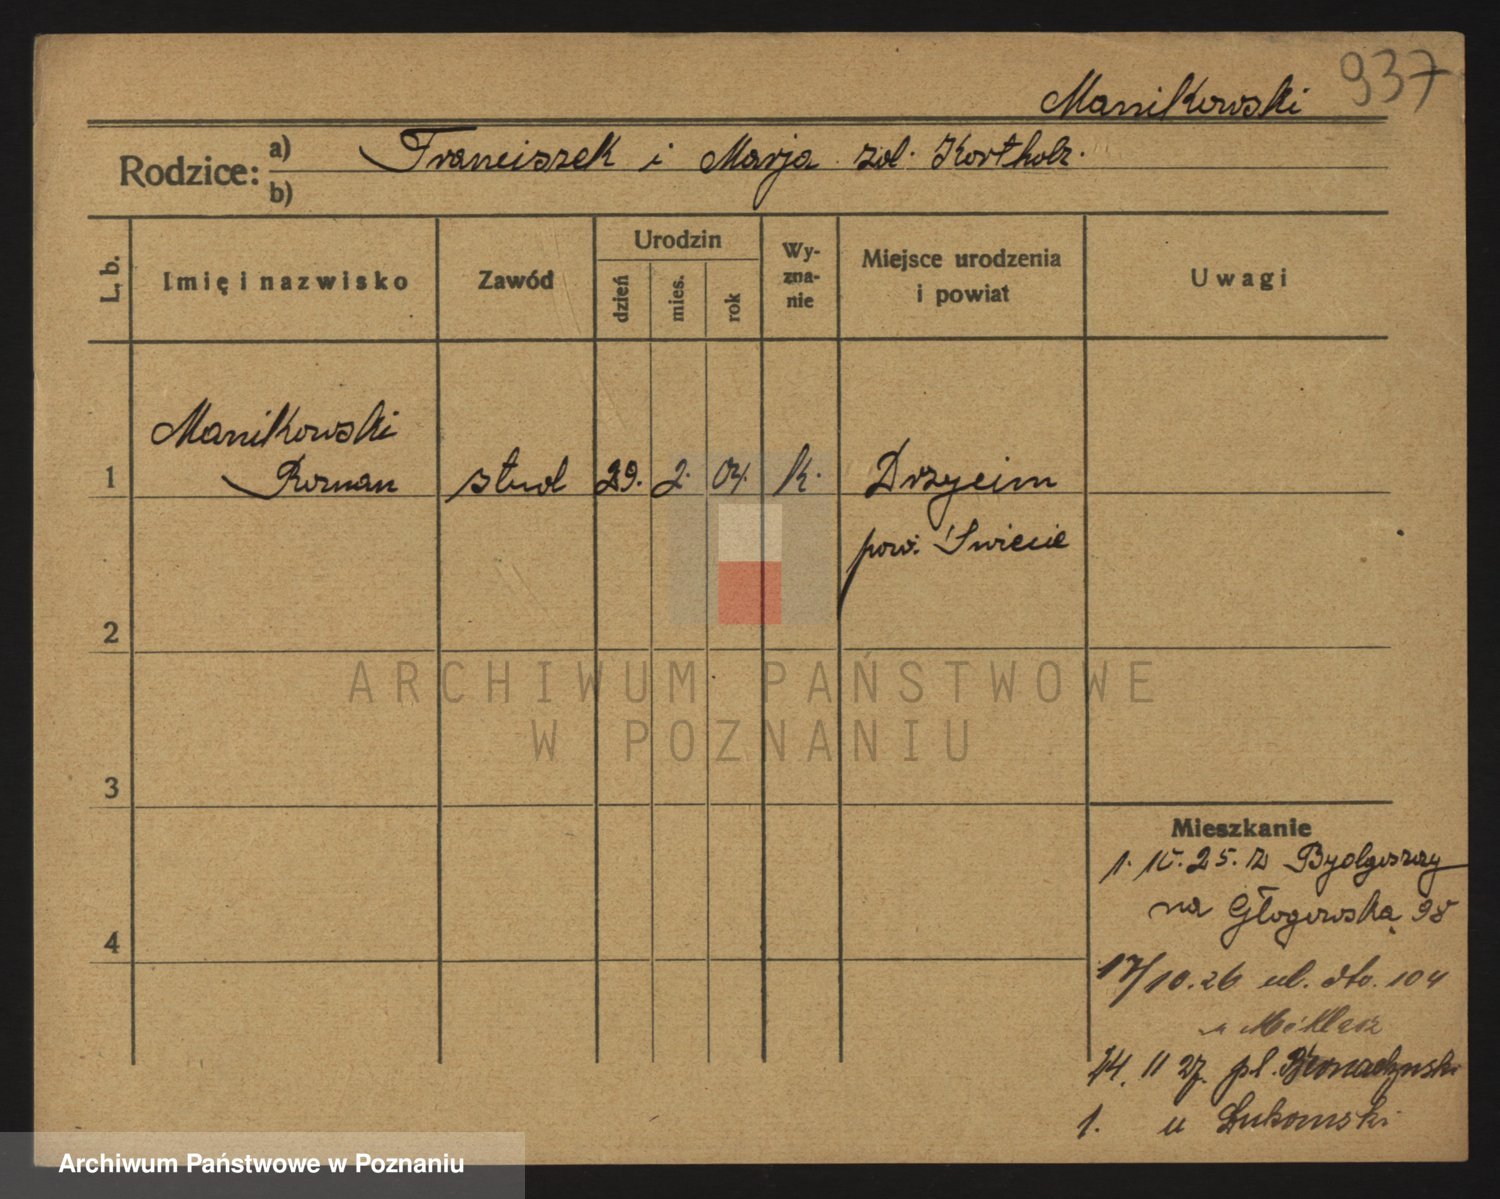 937
Manikowski
Rodzice: a) Franciszek i Marja zol. Kortholz.
b)
L. b. Imię i nazwisko Zawód Urodzin dzień mies. rok Wy-zna-nie Miejsce urodzenia i powiat Uwagi
Manikowski
1 Roman stud 29. 2. 04. k. Drzycim
pow. Świecie
2
ARCHIWUM PAŃSTWOWE
W POZNANIU
3
Mieszkanie
1. 10. 25. z Bydgoszczy
na Głogowską 98
4
17/10.26 ul. dto. 104
24. 11 27. pl. Bernadyński
1. u Łukomski
Archiwum Państwowe w Poznaniu